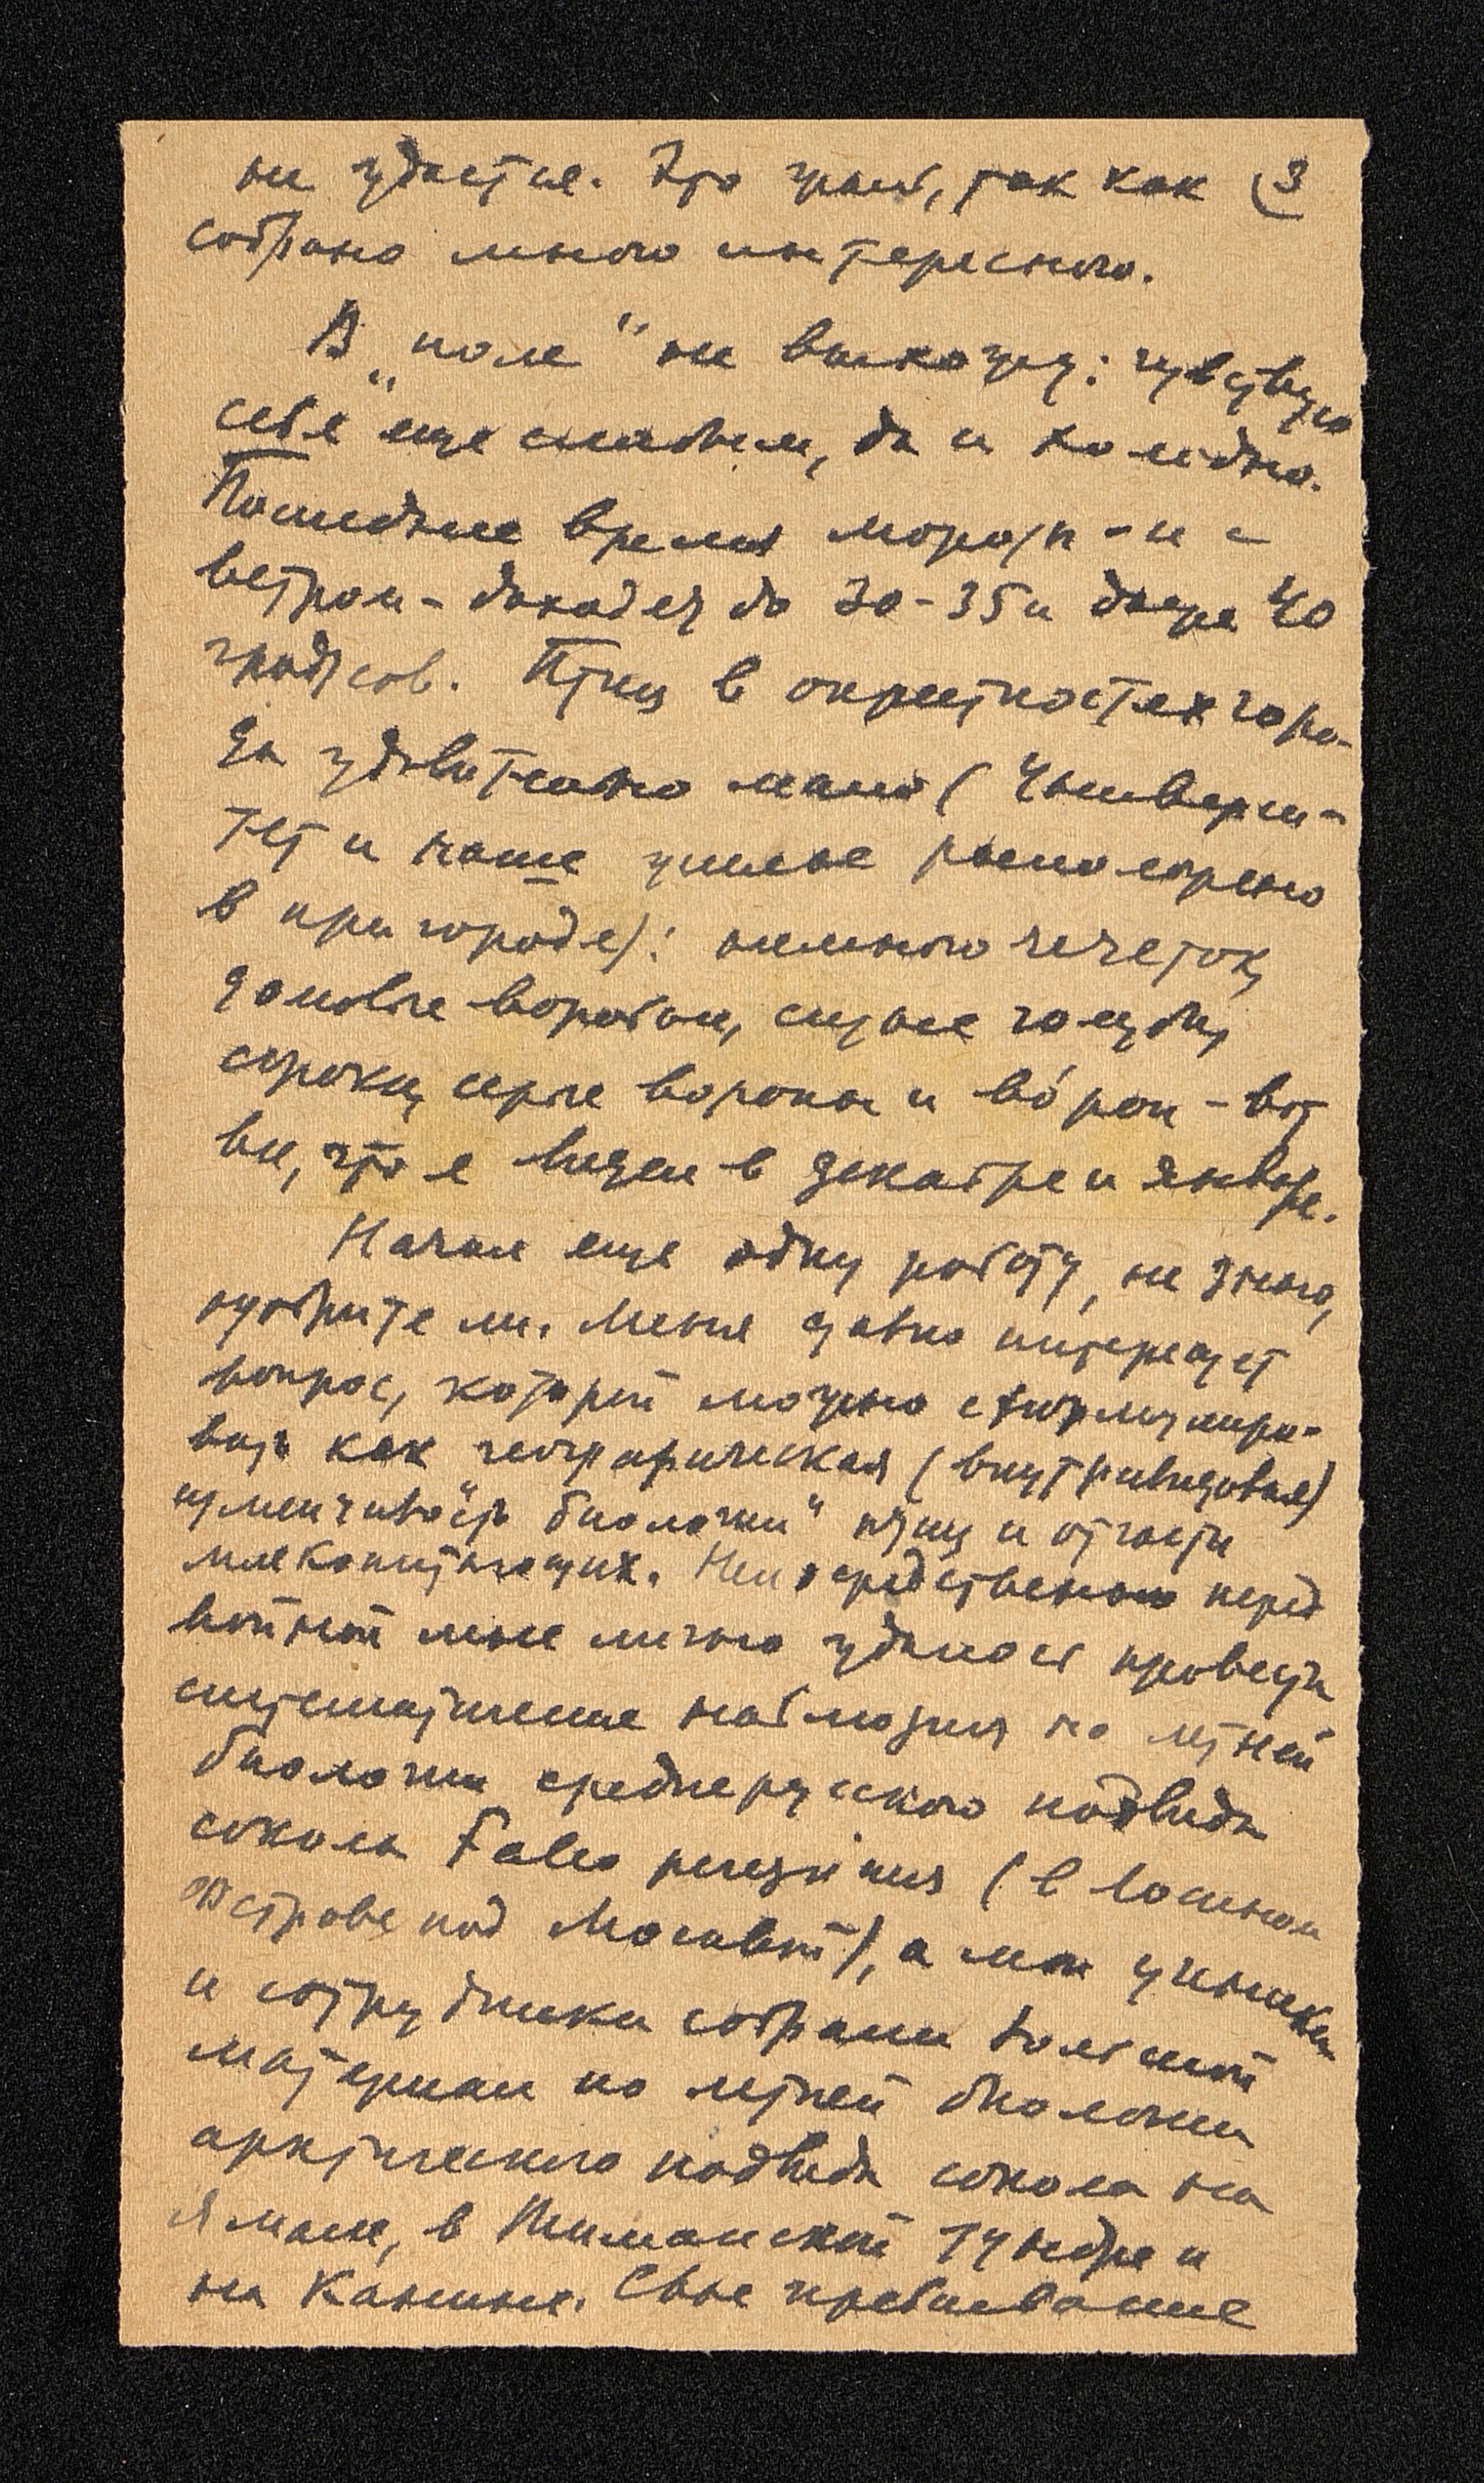 не удастся. Это жаль, так как 3
собрано много интересного.
В „поле“ не выхожу: чувствую
себя еще слабым, да и холодно.
Последнее время морозы - и с
ветром - доходят до 30-35 и даже 40
градусов. Птиц в окрестностях горо-
да удивительно мало (Универси-
тет и наше жилье расположено
в пригороде): немного чечеток,
домовые воробьи, сизые голуби,
сороки, серые вороны и во́рон - вот
все, что я видел в декабре и январе.
Начал еще одну работу, не знаю,
одобрите ли. Меня давно интересует
вопрос, который можно сформулиро-
вать как географическая (внутривидовая)
изменчивость „биологии“ птиц и отчасти
млекопитающих. Непосредственно перед
войной мне лично удалось провести
систематические наблюдения по летней
биологии среднерусского подвида
сокола Falco peregrinus (в Лосином
Острове под Москвой), а мои ученики
и сотрудники собрали большой
материал по летней биологии
арктического подвида сокола на
Ямале, в Тиманской тундре и
на Канине. Свое пребывание